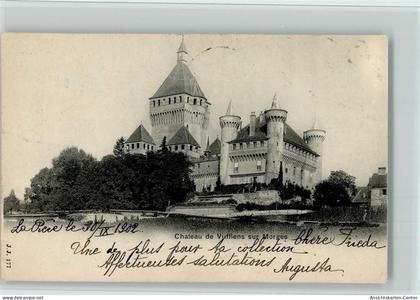 Chateau de Vufflens sur Morges
La 30/IX 1902
Chère Frieda
Une de plus pour ta collection
Affectueuses salutations Augusta
J. J. 177
www.Ansichtskarten-Center.de